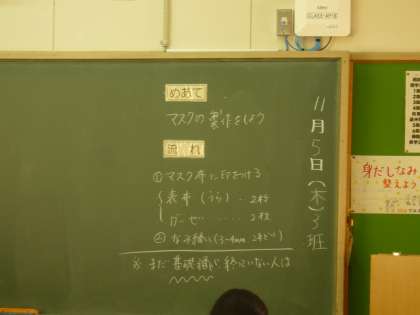 めあて
マスクの製作をしよう
流れ
①マスク布に印をつける
表布（うら）‥2枚
ガーゼ‥‥‥2枚
②なみ縫い(3~4mm
※まだ基礎縫いが終っていない人は
11月5日(木)3班
身だしなみ
整えよう